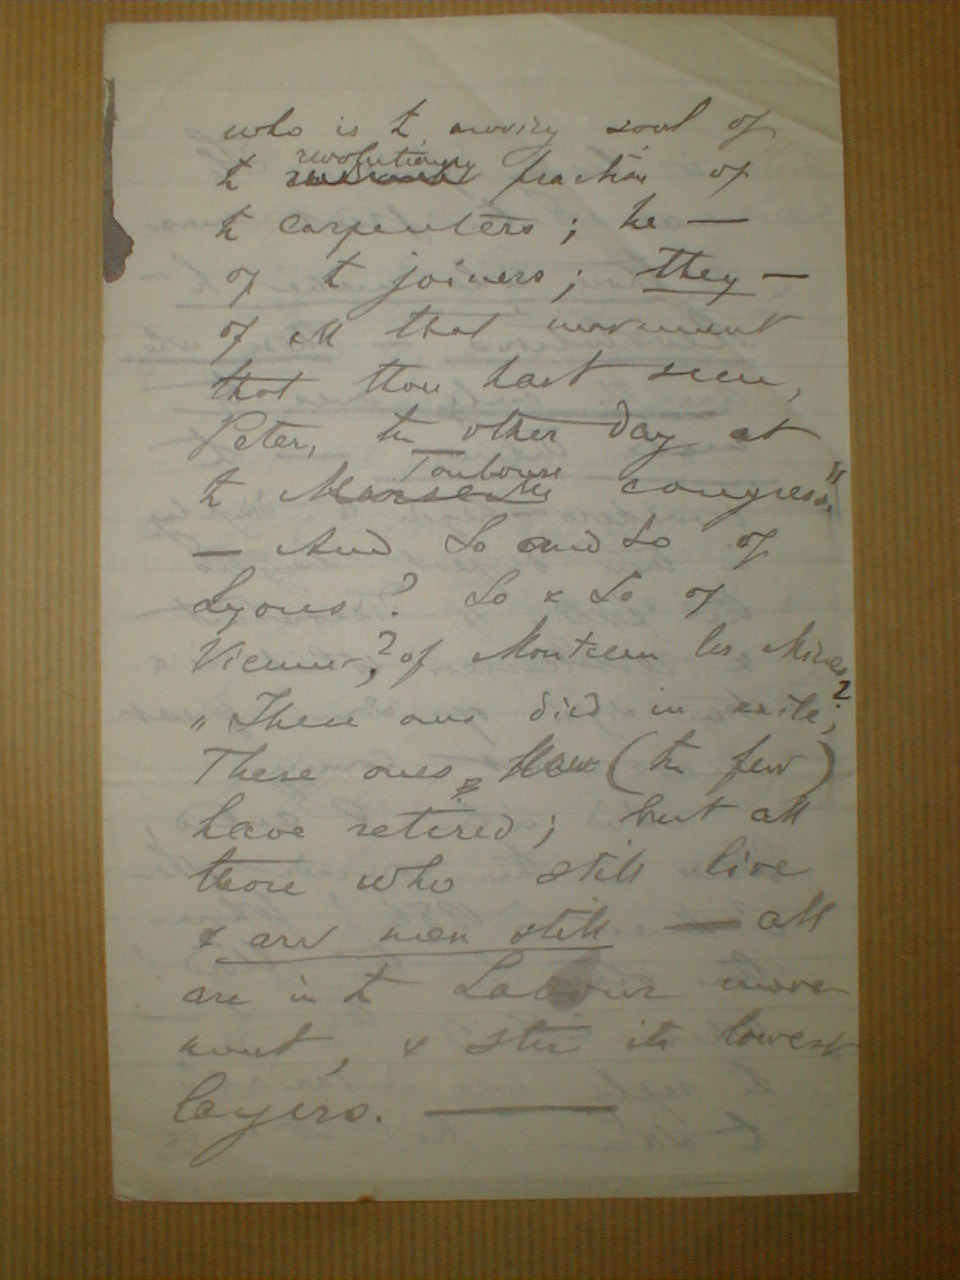 who is th moving soul of
revolutionary
th fraction of
th carpenters; he —
of th joiners; they —
of all that movement
that thou hast seen,
Peter, the other day at
Toulouse
th Marseille congress"
— And So and So of
Lyons? So & So of
Vienne? of Montceau les Mines?
„ These ones died in exile;
These ones, (the few)
have retired; but all
those who still live
& are men still — all
are in th Labour move
ment, & stir its lowest
layers. —